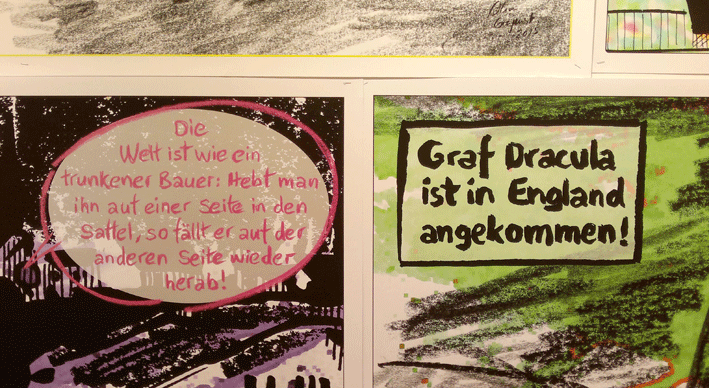 Die
Welt ist wie ein
trunkener Bauer: Hebt man
ihn auf einer Seite in den
Sattel, so fällt er auf der
anderen Seite wieder
herab!
Graf Dracula
ist in England
angekommen!